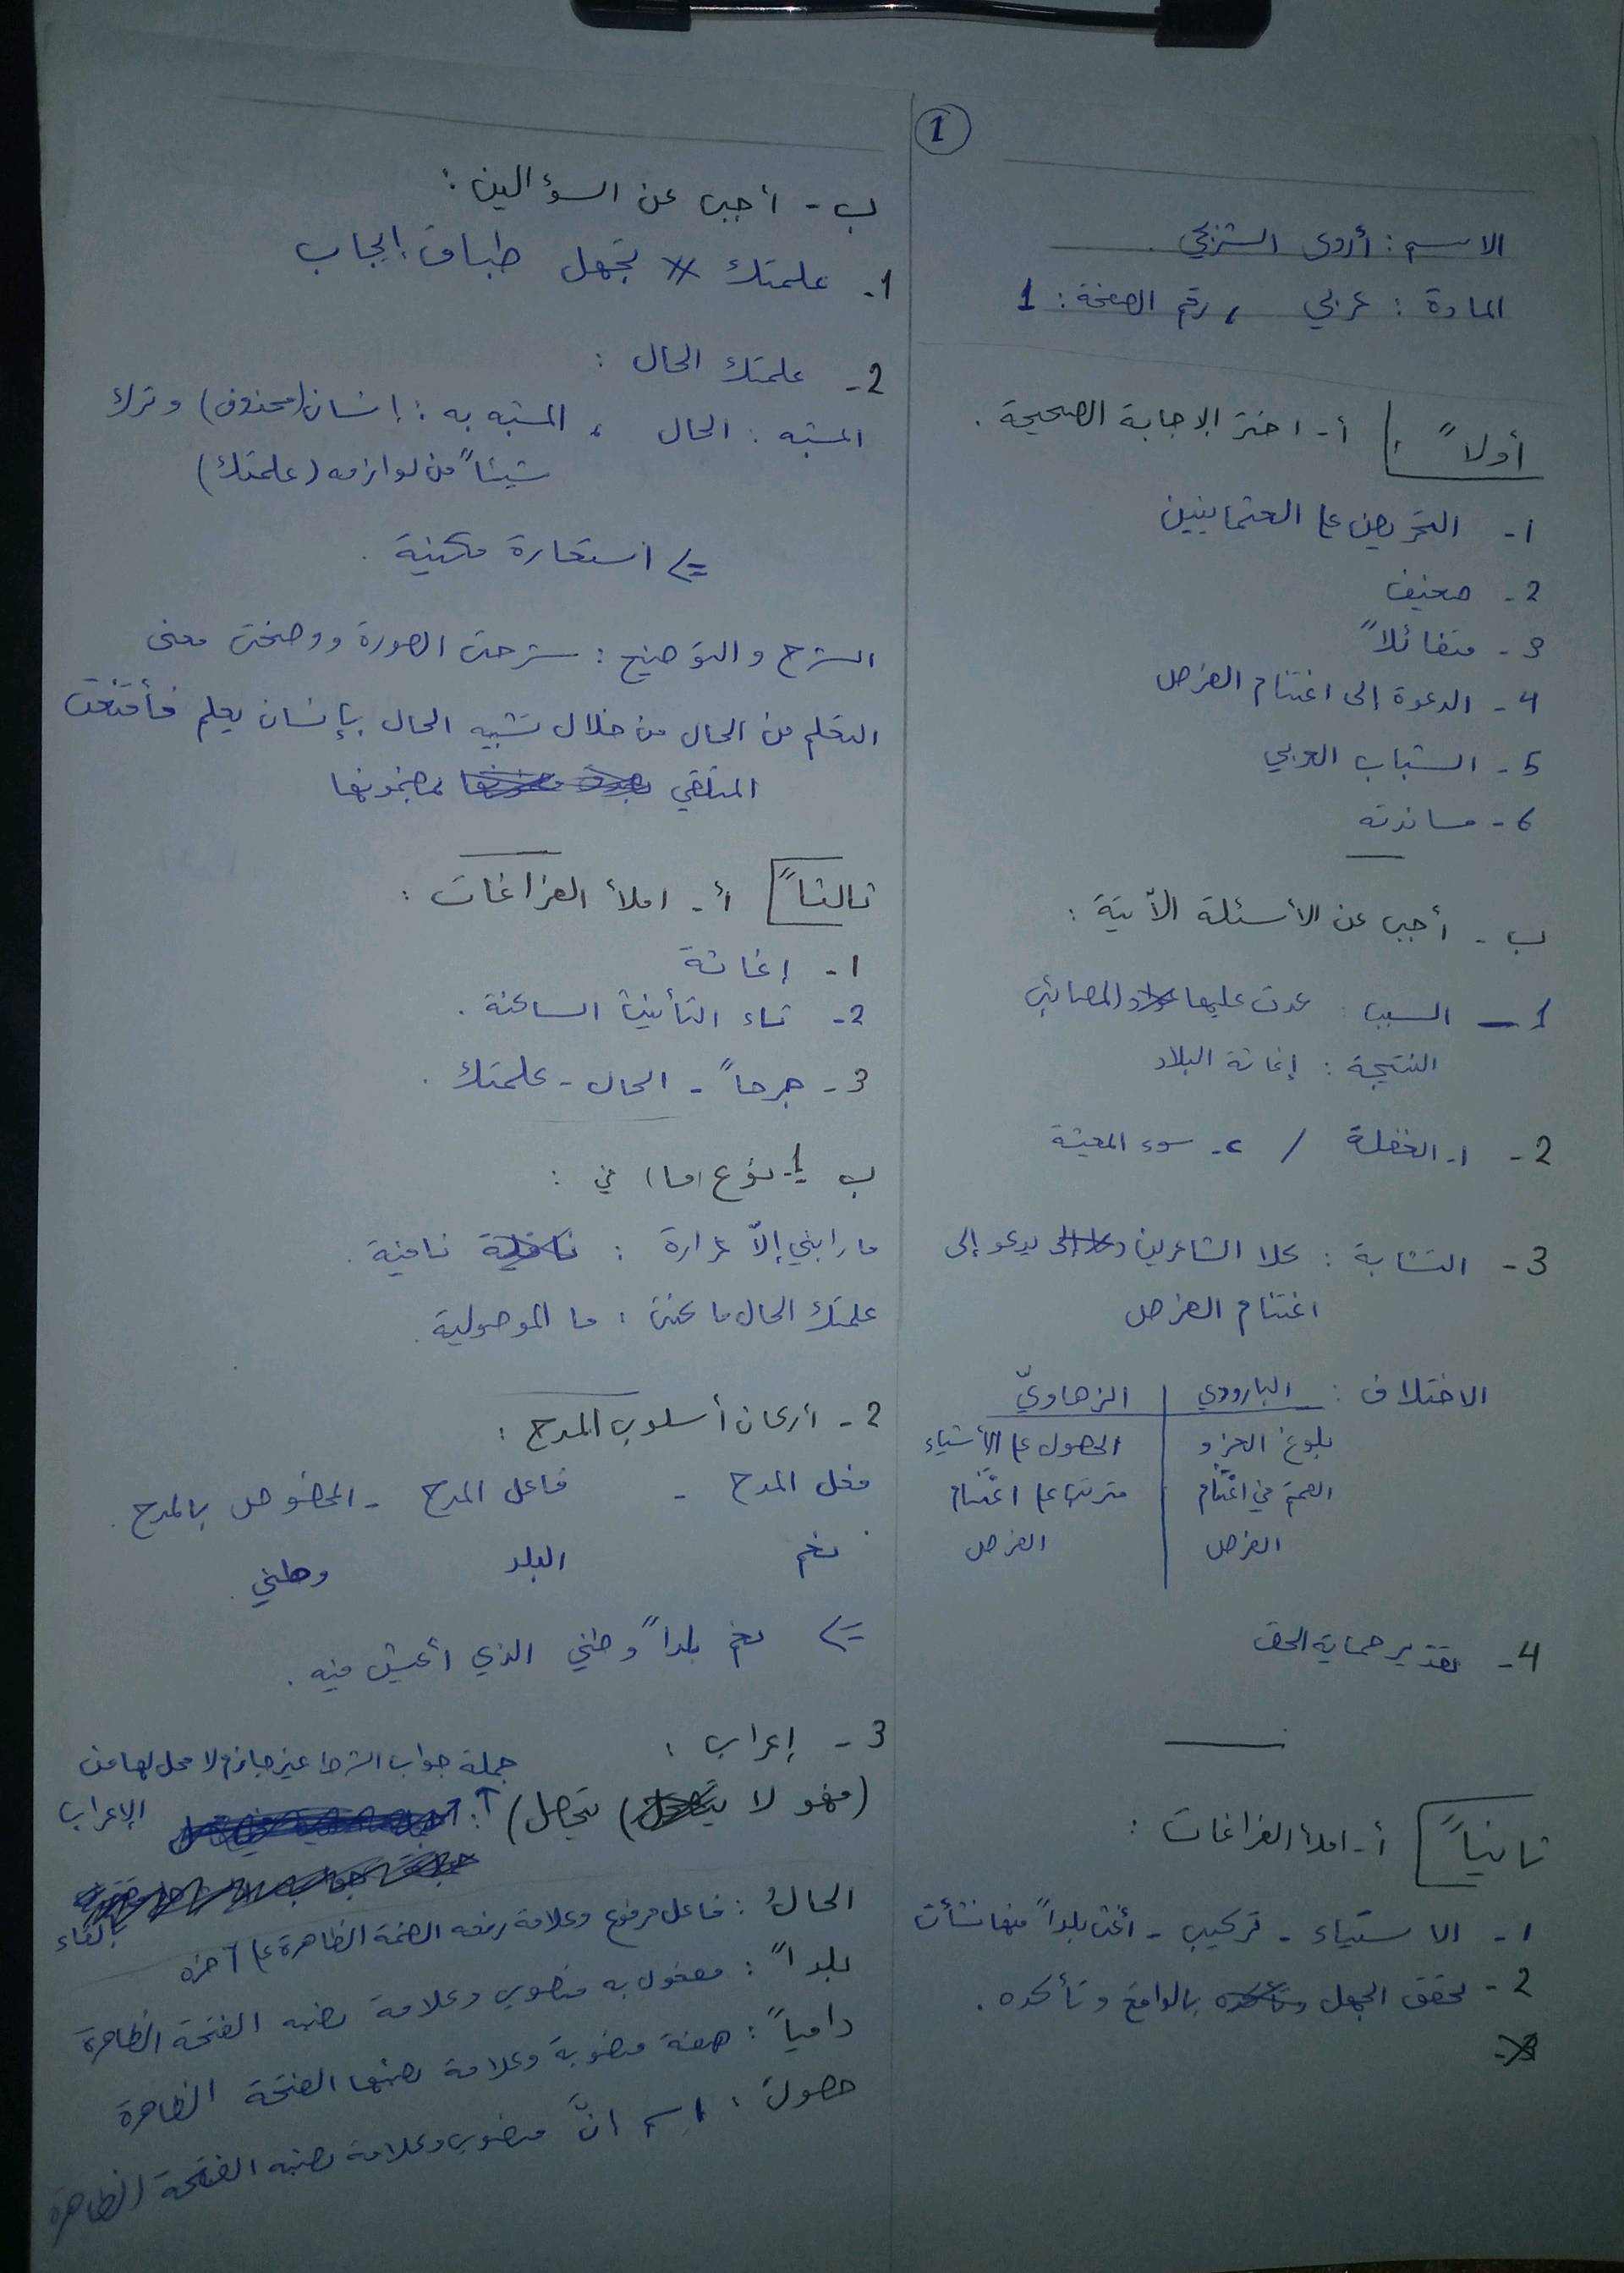 1
الاسم : أروى الشربجي
المادة : عربي ، رقم الصفحة : 1
أولاً : أ- اختر الإجابة الصحيحة .
1- التحريض على العثمانيين
2- ضعيف
3- متفائلاً
4- الدعوة إلى اغتنام الفرص
5- الشباب العربي
6- مساندته
ب- أجب عن الأسئلة الآتية :
1- السبب : عدت عليها عوادٍ المصائب
النتيجة : إغاثة البلاد
2- 1- الغفلة / 2- سوء المعيشة
3- التشابة : كلا الشاعرين يدعو إلى
اغتنام الفرص
الاختلاف : البارودي | الزهاويّ
بلوغ العز و | الحصول على الأشياء
الهمّة في اغتنام | مترتب على اغتنام
الفرص | الفرص
4- تقدير حماية الحق
ثانياً أ- املأ الفراغات :
1- الاستياء - تركيب - أغث بلداً منها نشأت
2- تحقق الجهل بالواقع وتأكده .
ب- أجب عن السؤالين :
1- علمتك ≠ تجهل طباق إيجاب
2- علمتك الحال :
المشبه : الحال ، المشبه به : إنسان (محذوف) وترك
شيئاً من لوازمه (علمتك)
<= استعارة مكنية .
الشرح والتوضيح : شرحت الصورة ووضحت معنى
التعلم من الحال من خلال تشبيه الحال بإنسان يعلم فأقنعت
المتلقي بمضمونها
ثالثاً أ- املأ الفراغات :
1- إغاثة
2- تاء التأنيث الساكنة .
3- جرحاً - الحال - علمتك .
ب 1- نوع (ما) في :
ما رابني إلاّ غرارة : نافية .
علمتك الحال ما كنت : ما الموصولية .
2- أركان أسلوب المدح :
فعل المدح - فاعل المدح - المخصوص بالمدح .
نعم البلد وطني .
<= نعم بلداً وطني الذي أعيش فيه .
3- إعراب :
(فهو لا تجهل) : جملة جواب الشرط غير جازم لا محل لها من
الإعراب
الحالُ : فاعل مرفوع وعلامة رفعه الضمة الظاهرة على آخره
بلداً : مفعول به منصوب وعلامة نصبه الفتحة الظاهرة
دامياً : صفة منصوبة وعلامة نصبها الفتحة الظاهرة
حصولَ : اسم انَّ منصوب وعلامة نصبه الفتحة الظاهرة